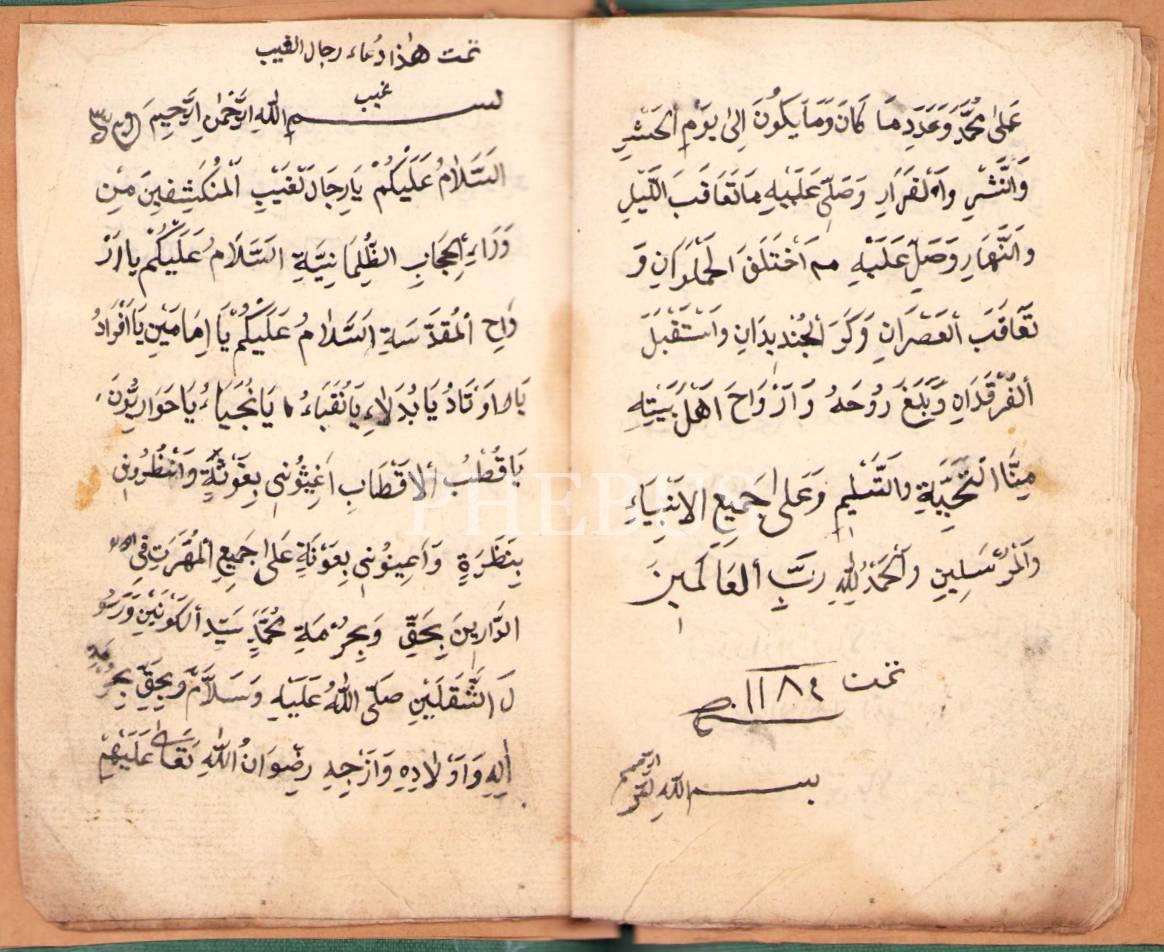 عَلٰى مُحَمَّدٍ وَعَدَدِ مَا كَانَ وَمَا يَكُونَ اِلىٰ يَوْمِ الْحَشْرِ
وَالنَّشْرِ وَالْقَرَارِ وَصَلِّى عَلَيْهِ مَا تَعَاقَبَ اللَّيْلِ
وَالنَّهَارِ وَصَلِّ عَلَيْهِ مم اَخْتَلَفَ الْمَلَوَانِ وَ
تَعَاقَبَ الْعَصْرَانِ وَكَرَ الْجُنْدِيدَانِ وَاسْتَقْبَلَ
الْفَرْقَدَاهِ وَبَلِّغْ رُوُحَهُ وَاَرْوَاحَ اَهْلِ بَيْتِهِ
مِنَّا التَّحِيَّةِ وَالتَّسْلِيمِ وَعَلىٰ جَمِيعِ الْاَنْبِيَاءِ
وَالْمُرْسَلِينِ وَالْحَمْدُ لِلّٰهِ رَبِّ الْعَالَمِينَ
تمت ١١٨٤
بسم الله الرحيم
تمت هٰذا دُعاء رجال الغيب
غيب
بسم اللّٰهِ الرَّحْمٰنِ الرَّحِيمِ
السَّلَامُ عَلَيْكُمْ يَا رِجَال لْغَيْبِ الْمُنْكَشِفِينَ مِنْ
وَرَاءِ الْحِجَابِ الظُّلِمَانِيَّةِ السَّلَامُ عَلَيْكُمْ يا اَرْ
وَاحِ الْمُقَدَّسَةِ السَّلَامُ عَلَيْكُمْ يَا اِمَامَيْنِ يَا اَفْرَادُ
يَا اَوْتَادُ يَا بُدَلَاءِ يَا نُقَبَاءُ يَا نُجَبَاءُ يَا حَوَارِيُّونَ
يَا قُطْبُ الاَقْطَابِ اَغِيثُونِى بِغَوْثَةٍ وَانْظُرُونِ
بِنَظْرَةٍ وَاَعِينُونِى بِعَوْنَةٍ عَلىٰ جَمِيعِ الْمُهَرَتِ فِى
الدَّارِينَ بِحَقِّ وَبِحُرْمَةِ مُحَمَّدٍ سَيِّدِ الْكَوْنَيْنِ وَرَسُو
لَ الثَّقَلَيْنِ صَلَّى اللّٰهُ عَلَيْهِ وَسَلَّامْ وَبِحَقِّ بِحُرْمَةِ
اٰلِهِ وَاَوْلَادِهِ وَاَزْجِهِ رِضْوَانُ اللّٰهِ تَعَالىٰ عَلَيْهِمْ
PHEBUS